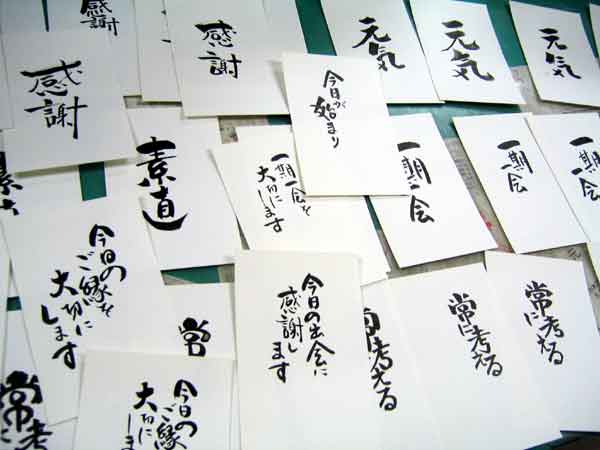 感謝
感謝
感謝
元気
元気
元気
今日が
始まり
素直
一期一会を
大切に
します
一期
一会
一期
一会
一期
一会
今日の
ご縁を
大切に
します
今日の出会に
感謝し
ます
考える
常に
考える
常に
考える
常
常
考
今日の
ご縁を
大切に
しま